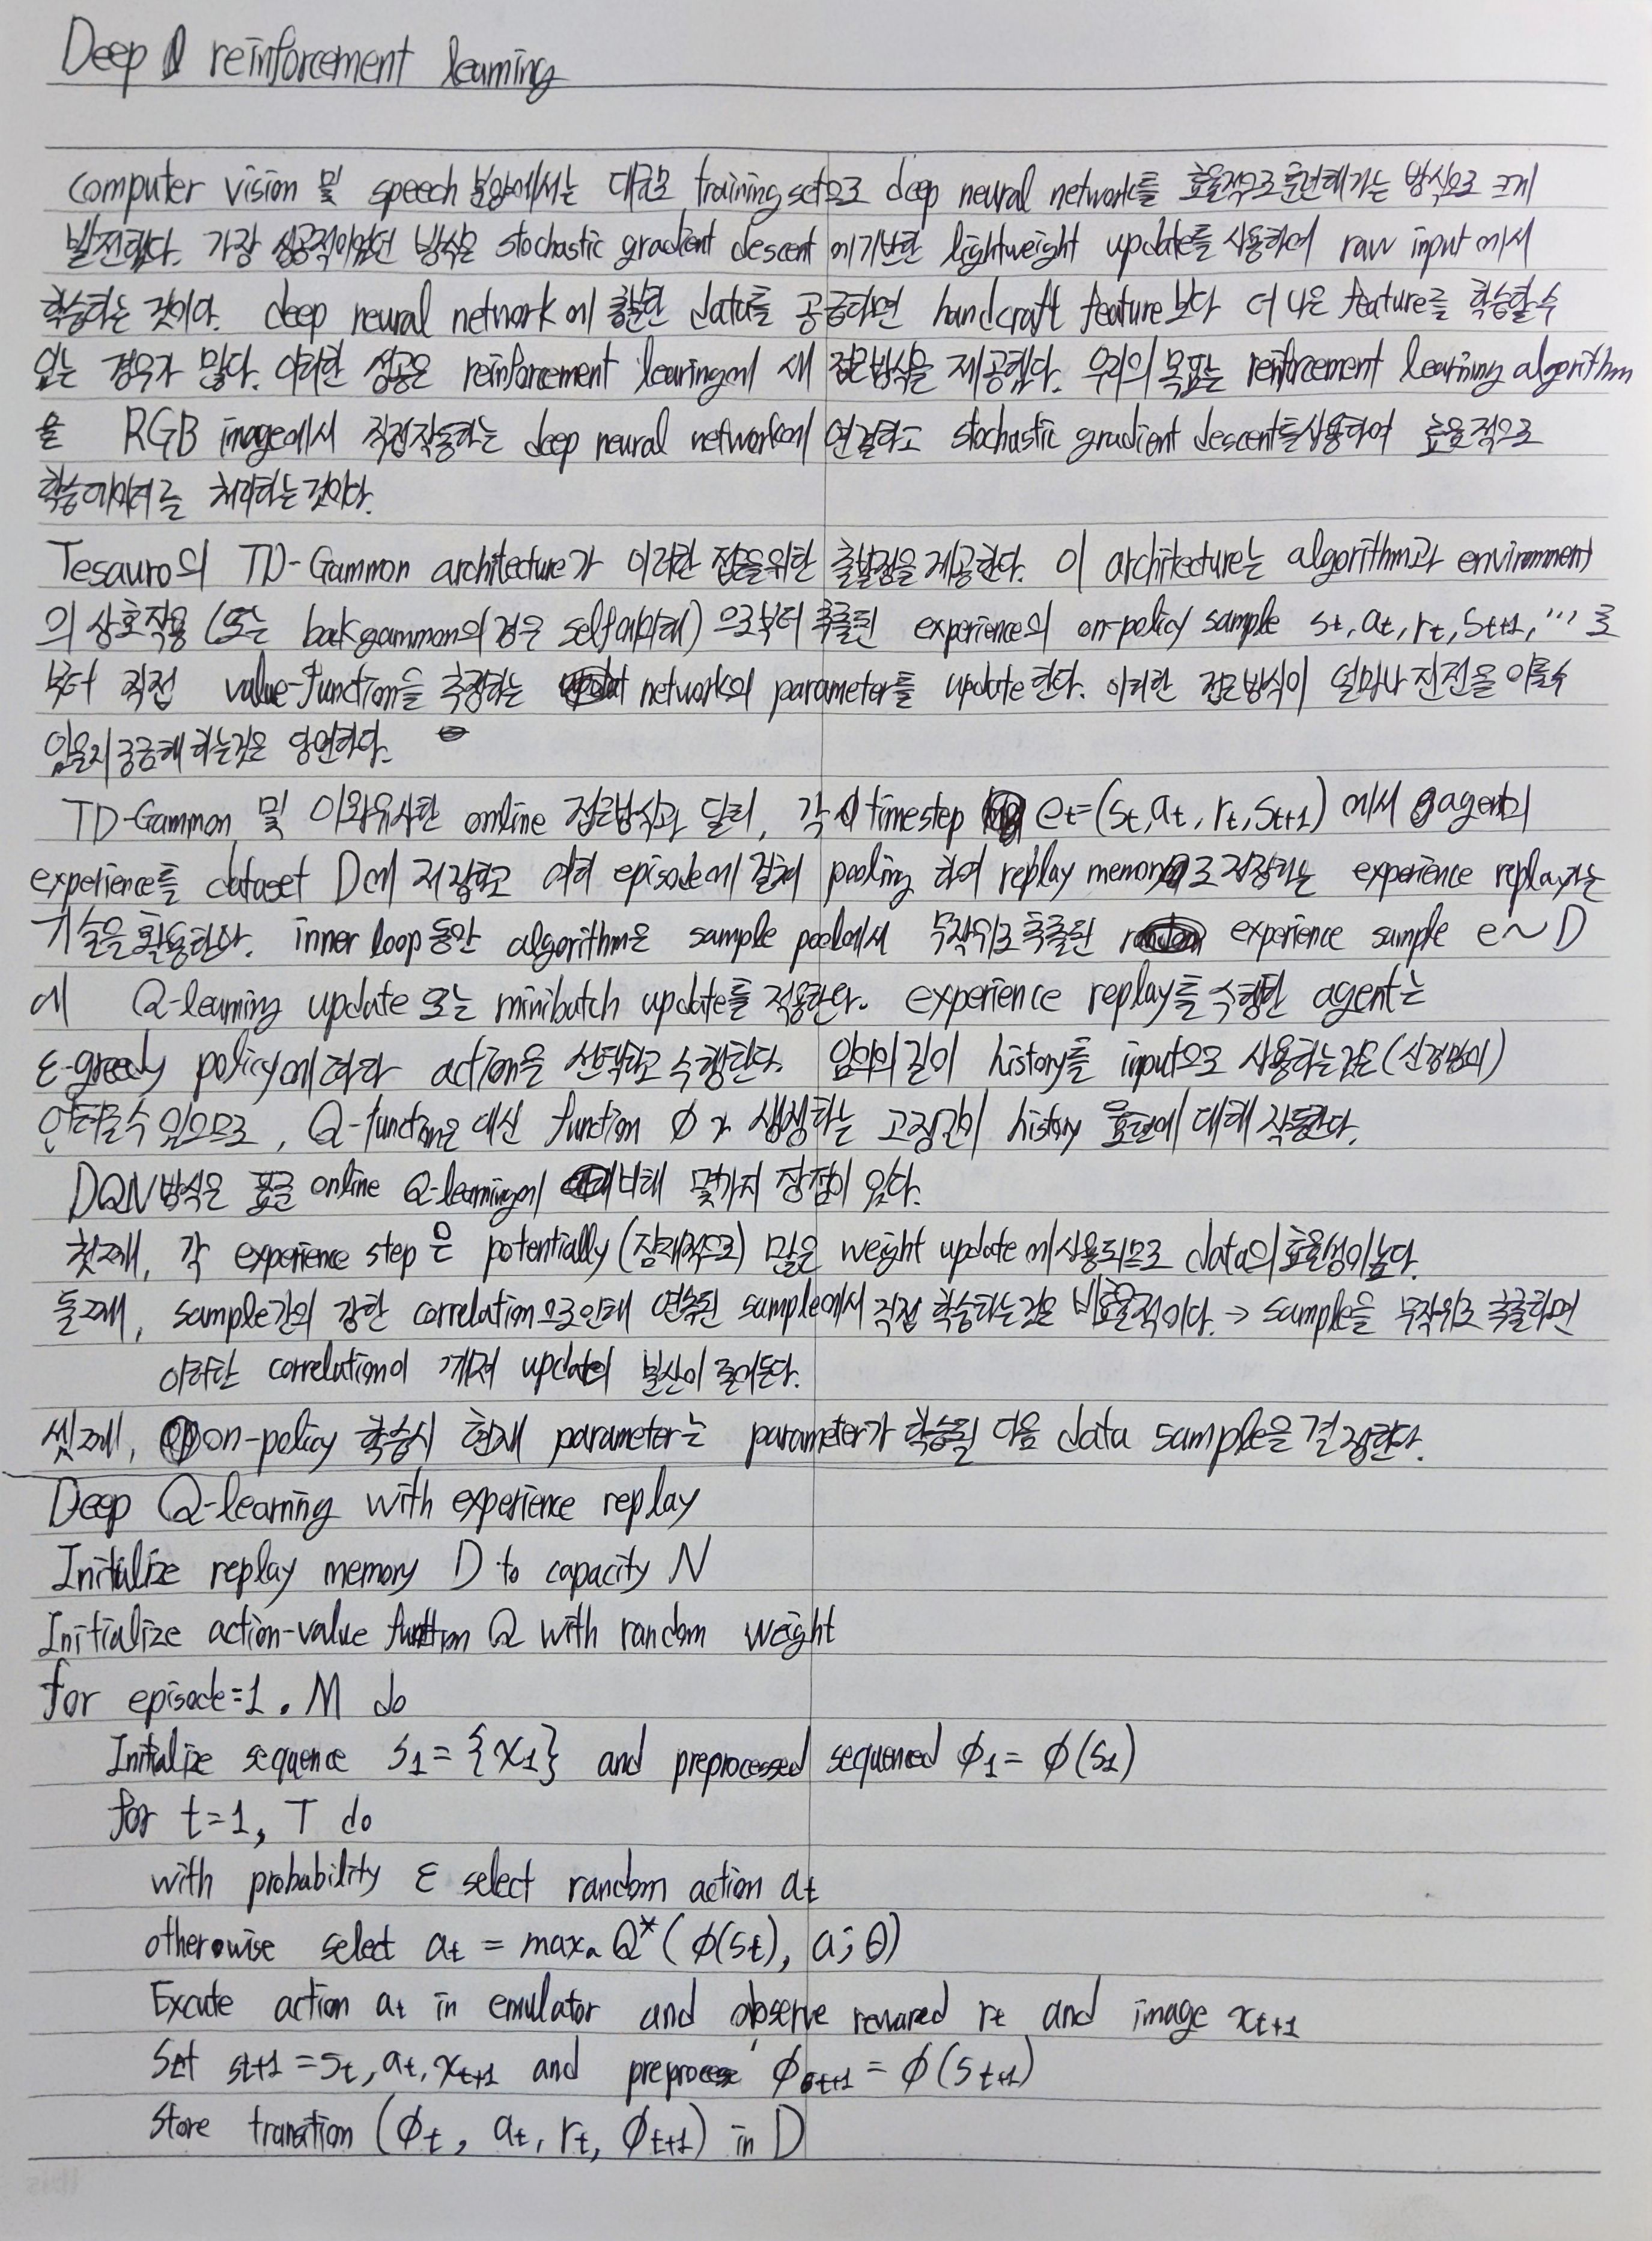 Deep reinforcement learning
computer vision 및 speech 분야에서는 대규모 training set으로 deep neural network를 효율적으로 훈련해가는 방식으로 크게
발전했다. 가장 성공적이었던 방식은 stochastic gradient descent에 기반한 lightweight update를 사용하여 raw input에서
학습하는 것이다. deep neural network에 충분한 data를 공급하면 handcraft feature보다 더 나은 feature를 학습할 수
있는 경우가 많다. 이러한 성공은 reinforcement learing에 새 접근방식을 제공했다. 우리의 목표는 reinforcement learning algorithm
을 RGB image에서 직접 작동하는 deep neural network에 연결하고 stochastic gradient descent를 사용하여 효율적으로
학습데이터를 처리하는 것이다.
Tesauro의 TD-Gammon architecture가 이러한 접근을 위한 출발점을 제공한다. 이 architecture는 algorithm과 environment
의 상호작용 (또는 backgammon의 경우 self) 으로부터 추출된 experience의 on-policy sample st, at, rt, st+1, ... 로
부터 직접 value-function을 측정하는 network의 parameter를 update한다. 이러한 접근방식이 얼마나 진전을 이룰 수
있을지 궁금해 하는것은 당연하다.
TD-Gammon 및 이와 유사한 online 접근방식과 달리, 각 timestep et=(st, at, rt, st+1) 에서 agent의
experience를 dataset D에 저장하고 여러 episode에 걸쳐 pooling 하여 replay memory로 저장하는 experience replay라는
기술을 활용한다. inner loop 동안 algorithm은 sample pool에서 무작위로 추출된 experience sample e~D
에 Q-learning update 또는 minibatch update를 적용한다. experience replay를 수행한 agent는
ε-greedy policy에 따라 action을 선택하고 수행한다. 임의의 길이 history를 input으로 사용하는 것은 (신경망의)
어려울 수 있으므로, Q-function은 대신 function ϕ가 생성하는 고정길이 history 표현에 대해 작동한다.
DQN 방식은 표준 online Q-learning에 비해 몇가지 장점이 있다.
첫째, 각 experience step은 potentially (잠재적으로) 많은 weight update에 사용되므로 data의 효율성이 높다.
둘째, sample간의 강한 correlation으로 인해 연속된 sample에서 직접 학습하는 것은 비효율적이다. → sample을 무작위로 추출하면
이러한 correlation이 깨져 update의 분산이 줄어든다.
셋째, on-policy 학습시 현재 parameter는 parameter가 학습될 다음 data sample을 결정한다.
Deep Q-learning with experience replay
Initialize replay memory D to capacity N
Initialize action-value function Q with random weight
for episode=1, M do
Initialize sequence s1={x1} and preprocessed sequenced ϕ1=ϕ(s1)
for t=1, T do
with probability ε select random action at
otherwise select at = maxa Q*(ϕ(st), a; θ)
Excute action at in emulator and observe reward rt and image xt+1
Set st+1=st, at, xt+1 and preprocess ϕt+1=ϕ(st+1)
Store transition (ϕt, at, rt, ϕt+1) in D